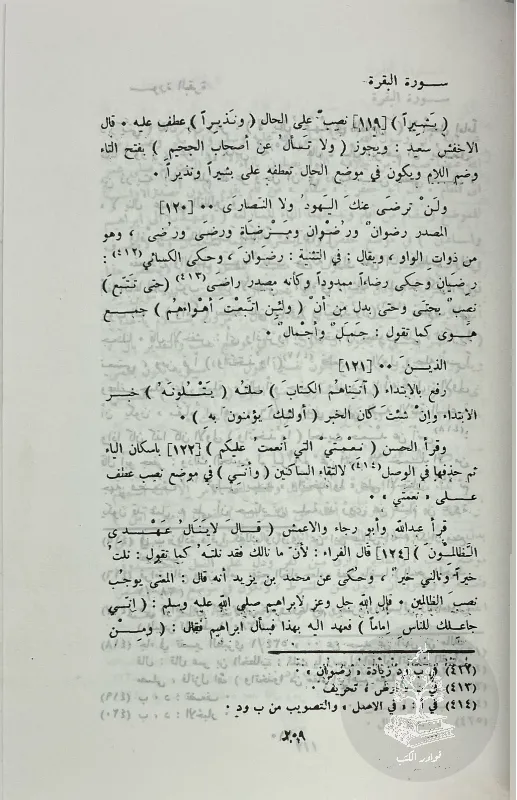 ســورة البقرة
( بَشيراً ) [١١٩] نصبٌ على الحال ( ونَذيراً ) عطف عليه . قال
الأخفش سعيد : ويجوز ( ولا تسألُ عن أصحاب الجحيم ) بفتح التاء
وضم اللام ويكون في موضع الحال تعطفه على بشيراً ونذيراً .
ولَنْ ترضَى عنكَ اليهودُ ولا النصارَى .. [١٢٠]
المصدر رضوانٌ ورُضْوان ومَرْضَاة ورِضَى ورُضَى ، وهو
من ذوات الواو ، ويقال : في التثنية : رضوان ، وحكى الكسائي(٤١٢) :
رضيان وحكى رضاءاً ممدوداً وكأنه مصدر راضَى(٤١٣) (حتى تتبع)
نصبٌ بحتى وحتى بدل من أنْ ( ولئِن اتَّبعتَ أهْواءهم ) جمــع
هَوى كما تقول : جَمَلٌ وأجْمالٌ .
الذينَ .. [١٢١]
رفع بالابتداء ( آتيناهُم الكتابَ ) صلته ( يَتْلُونَهُ ) خبر
الابتداء وإنْ شئتَ كان الخبر ( أولئِكَ يؤمنونَ بهِ ) .
وقرأ الحسن ( نِعْمتيْ التي أنعمتُ عليكم ) [١٢٢] باسكان الياء
ثم حذفها في الوصل(٤١٤) لالتقاء الساكنين ( وأنّي ) في موضع نصب عطف
علــى « نعمتي » .
قرأ عبدالله وأبو رجاء والاعمش ( قــالَ لايَنَالُ عَهْــدي
الظَّالمونَ ) [١٢٤] قال الفراء : لأنّ ما نالك فقد نلتَهُ كما تقول : نلتُ
خيراً ونالني خيرٌ ، وحُكى عن محمد بن يزيد أنه قال : المعنى يوجبُ
نصبَ الظالمين . قال الله جل وعز لابراهيم صلى الله عليه وسلم : ( إنّي
جاعـلك للناسِ إماماً ) فعهد اليه بهذا فسأل ابراهيم فقال : ( ومِــنْ
(٤١٢) في ب ود زيادة « رضوان » .
(٤١٣) في ب « أرض » تحريف .
(٤١٤) في أ : « في الاصل » والتصويب من ب ود .
٢٠٩
نوادر الكتب